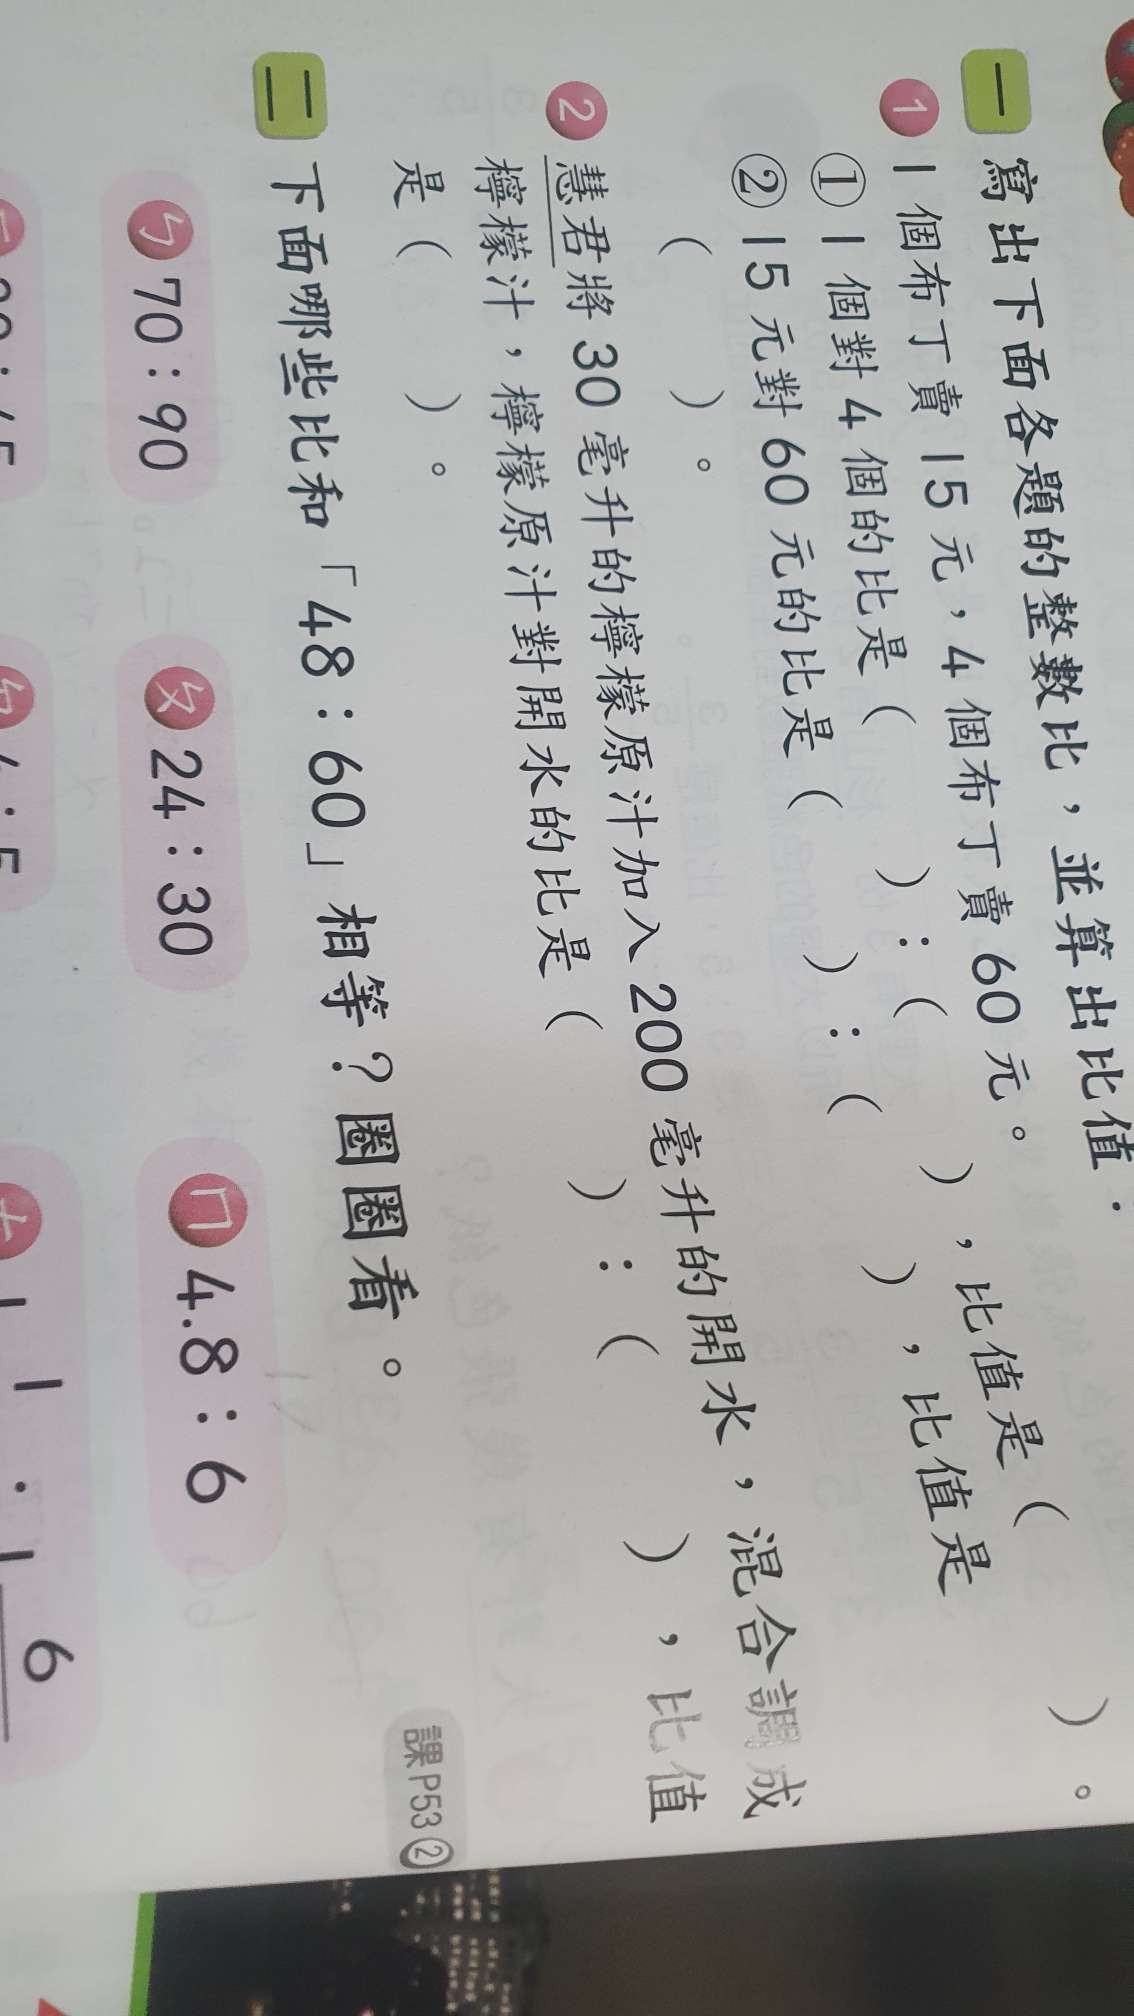 一 寫出下面各題的整數比,並算出比值:
1 1個布丁賣15元,4個布丁賣60元。
①1個對4個的比是( ):( ),比值是( )。
②15元對60元的比是( ):( ),比值是
( )。
2 慧君將30毫升的檸檬原汁加入200毫升的開水,混合調成
檸檬汁,檸檬原汁對開水的比是( ):( ),比值
是( )。
課P53②
二 下面哪些比和「48:60」相等?圈圈看。
ㄅ 70:90 ㄆ 24:30 ㄇ 4.8:6
6